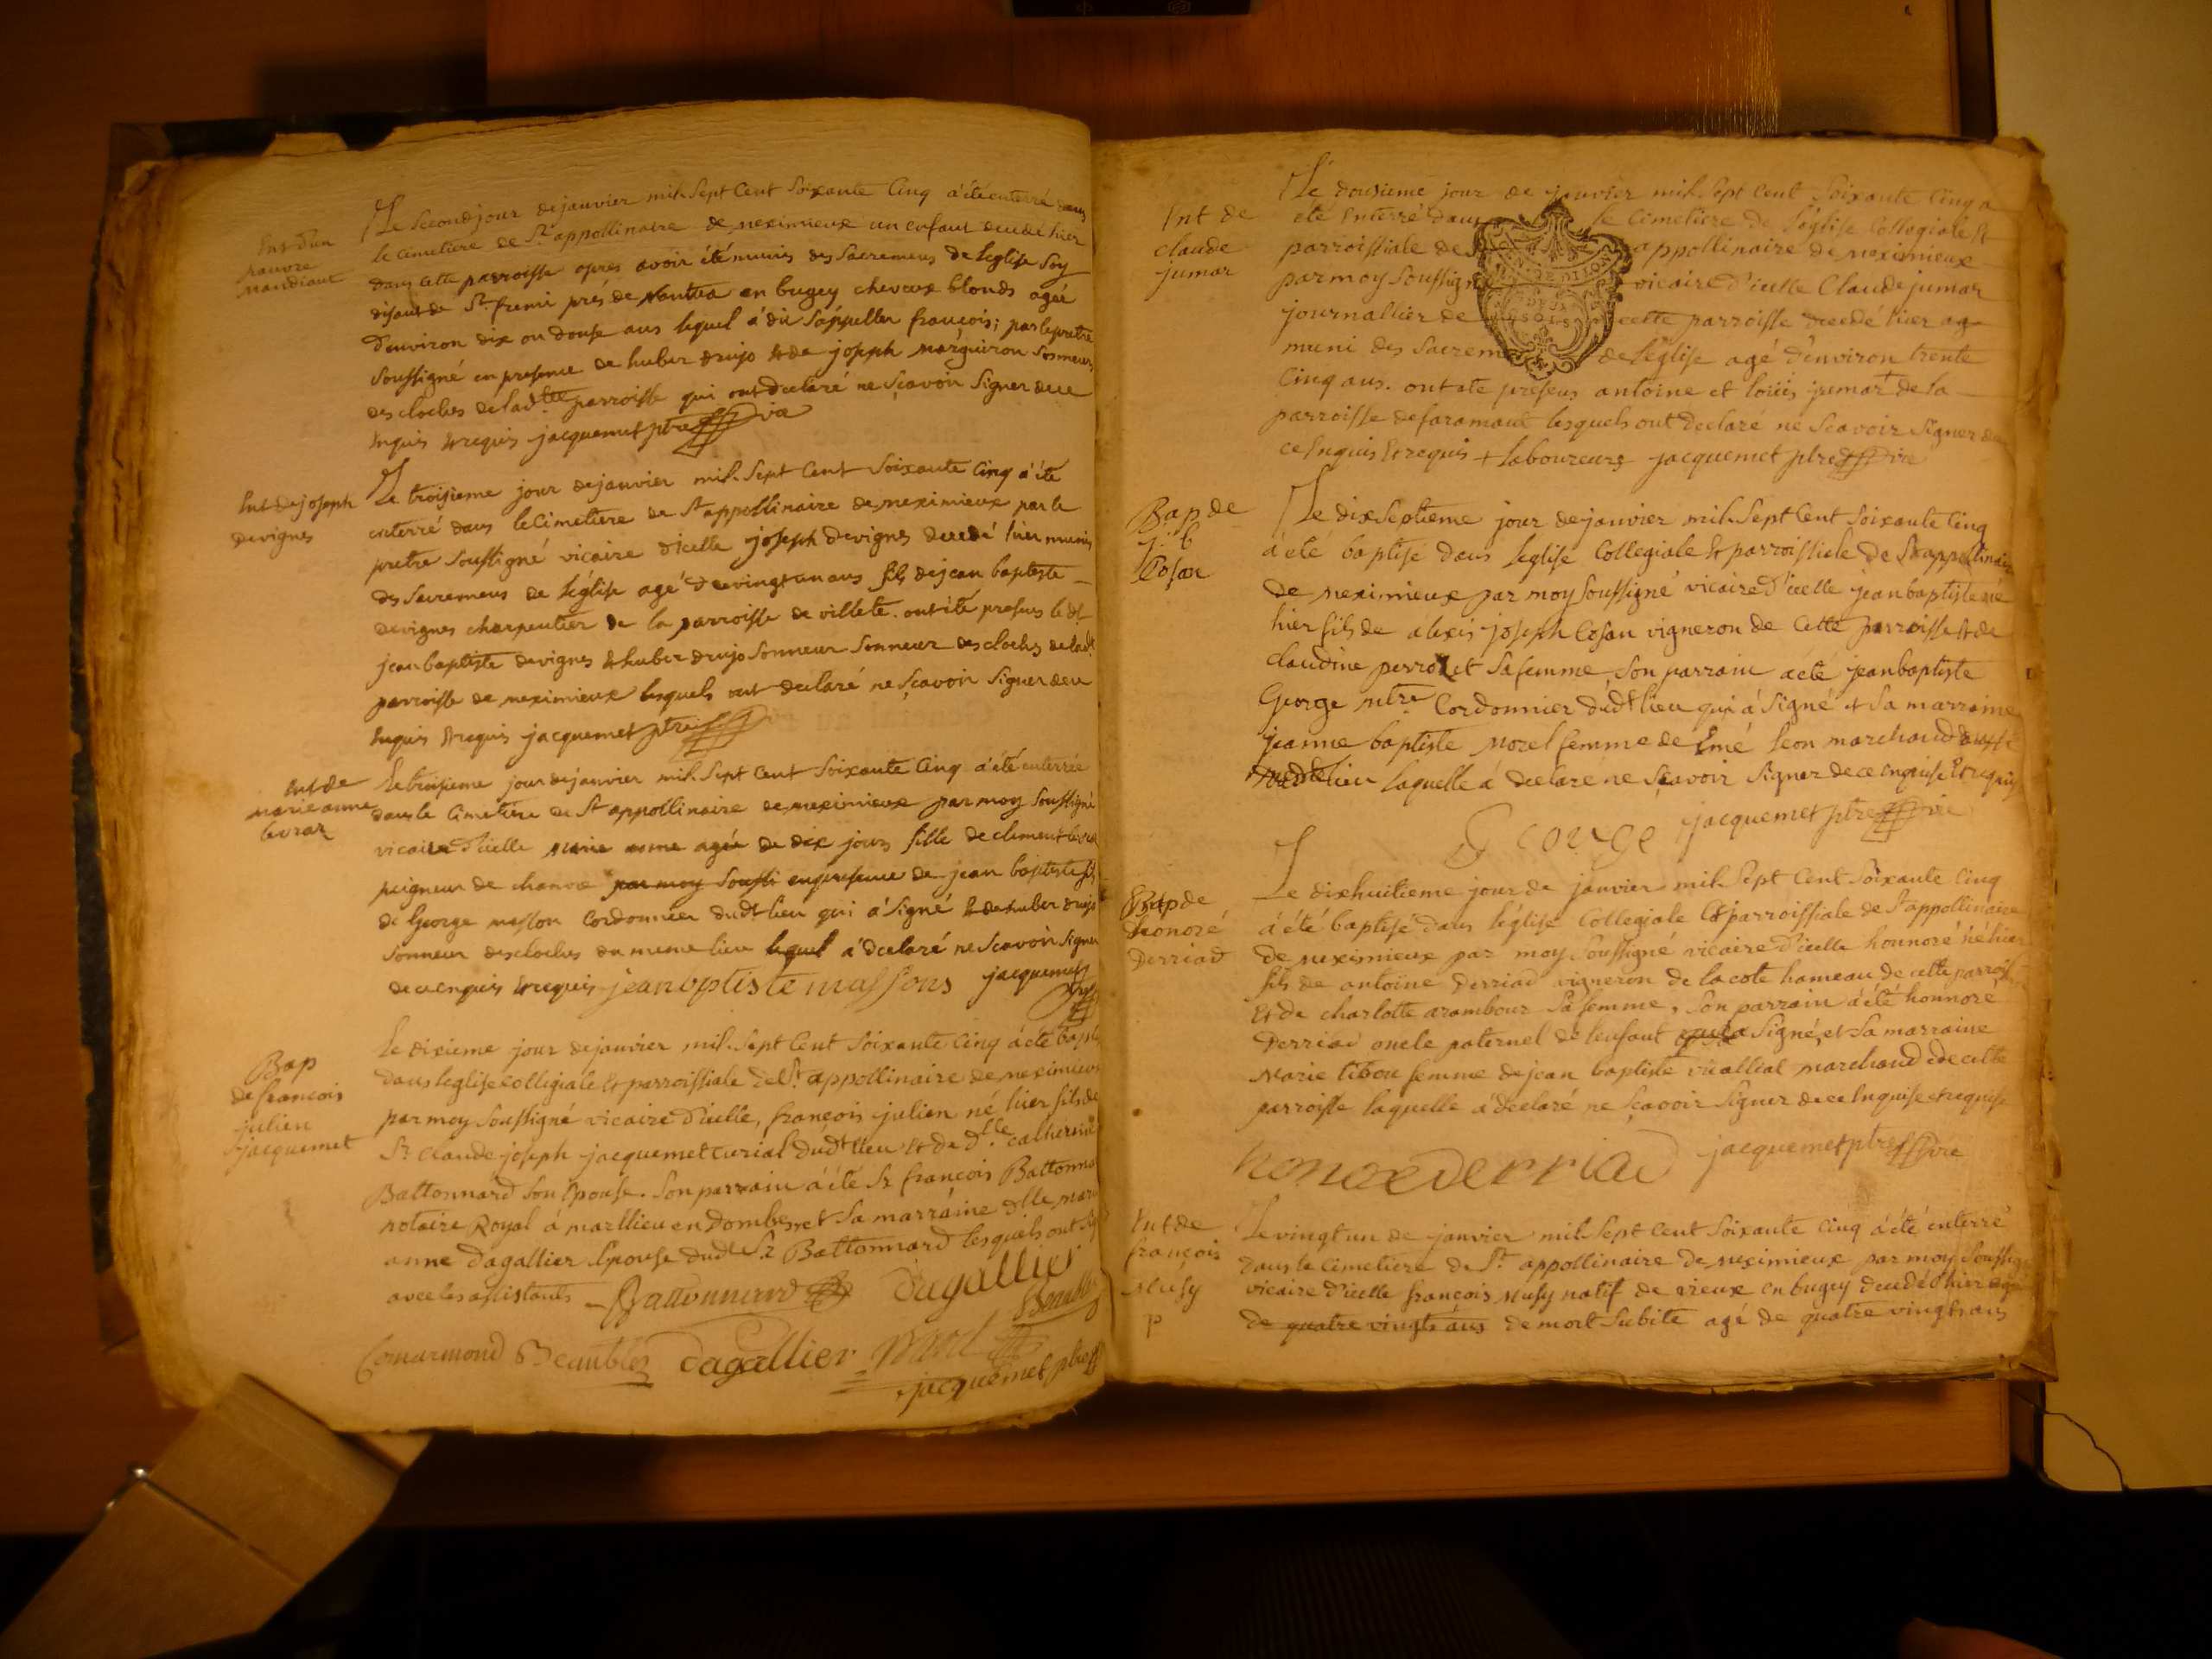 Ent d'un
pauvre
mandiant
Le second jour de janvier mil. Sept Cent Soixante Cinq a été enterré dans
le cimetiere de St. appollinaire de meximieux un enfant decedé hier
dans cette parroisse apres avoir été munis des Sacremens de leglise Soy
disant de St. fremi près de Nantua en bugey cheveux blonds agée
d'environ dix ou douse ans lequel a dit s'appeller françois; par le pretre
Soussigné en presence de huber drujo & de joseph marguiron Sonneurs
des cloches de lad.tte parroisse qui ont declaré ne sçavoir Signer de ce
enquis & requis jacquemet ptre vic
Ent de joseph
devignes
Le troisieme jour de janvier mil. Sept Cent Soixante Cinq a été
enterré dans le Cimetiere de St appollinaire de meximieux par le
pretre Soussigné vicaire d'icelle joseph devignes decedé hier munis
des Sacremens de l'église agé de vingt un ans fils de jean baptiste
devignes charpentier de la parroisse de villete. ont été presens le dt
jean baptiste devignes & huber drujo Sonneur Sonneur des cloches de ladt.
parroisse de meximieux lesquels ont declaré ne sçavoir Signer de ce
enquis & requis jacquemet ptre
Ent de
marie anne
levrar
Le troisieme jour de janvier mil. Sept Cent Soixante Cinq a été enterrée
dans le Cimetiere de St appollinaire de meximieux par moy Soussigné
vicaire d'icelle marie anne agée de dix jours fille de clement levrar
peigneur de chanvre par moy Soussi en presence de jean baptiste fils
de George masson Cordonnier dudt lieu qui a Signé & de huber drujo
Sonneur des cloches du meme lieu lequel a declaré ne Scavoir Signer
de ce enquis & requis jean baptiste massons jacquemet
Bap
de françois
julien
jacquemet
Le dixieme jour de janvier mil. Sept Cent Soixante Cinq a été bapti
dans leglise collegiale et parroissiale de St. appollinaire de meximieux
par moy Soussigné vicaire d'icelle, françois julien né hier fils de
Sr. claude joseph jacquemet curial dudt lieu et de dlle. catherine
Battonnard Son Epouse. Son parrain a été Sr françois Battonna
notaire Royal à marllieu en Dombes et Sa marraine dlle mari
anne dagallier Epouse dudt Sr Battonnard lesquels ont sig
avec les assistants Battonnard dagallier
Comarmond dagallier
jacquemet ptre
Ent de
claude
jumar
Le dousieme jour de janvier mil. Sept Cent Soixante Cinq a
été Enterré dans le Cimetiere de l'église Collegiale &
parroissiale de St appollinaire de meximieux
par moy Soussigné vicaire d'icelle Claude jumar
journallier de cette parroisse decedé hier
muni des Sacremens de l'église agé d'environ trente
Cinq ans. ont été presens antoine et loüis jumar + de la
parroisse de faramant lesquels ont declaré ne Scavoir Signer de
ce Enquis & requis + laboureurs jacquemet ptre vic
Bap de
j. b
Cosan
Le dix Septieme jour de janvier mil. Sept Cent Soixante Cinq
a été baptisé dans leglise Collegiale & parroissiale de St appollinaire
de meximieux par moy Soussigné vicaire d'icelle jean baptiste né
hier fils de alexis joseph Cosan vigneron de Cette parroisse & de
claudine perrolet Sa femme, Son parrain a été jean baptiste
George mtre Cordonnier dudt lieu qui a Signé & Sa marraine
jeanne baptiste morel femme de Emé leon marchand aussi
dudt lieu laquelle a declaré ne Sçavoir Signer de ce enquise & requise
George jacquemet ptre vic
Bap de
honoré
Derriad
Le dixhuitieme jour de janvier mil. Sept Cent Soixante Cinq
a été baptisé dans l'église Collegiale & parroissiale de St appollinaire
de meximieux par moy Soussigné vicaire d'icelle honnoré né hier
fils de antoine Derriad vigneron de la cote hameau de cette parroisse
& de charlotte arambour Sa femme, Son parrain a été honnoré
Derriad oncle paternel de l'enfant qui a Signé, et Sa marraine
Marie tibou femme de jean baptiste viallat marchand de cette
parroisse laquelle a declaré ne Sçavoir Signer de ce Enquise & requise
honore derriad jacquemet ptre vic
Ent de
françois
Musy
p
Le vingt un de janvier mil. Sept Cent Soixante Cinq a été enterré
dans le Cimetiere de St. appollinaire de meximieux par moy Soussigné
vicaire d'icelle françois Musy natif de vieux en bugey decedé hier agé
de quatre vingts ans de mort Subite agé de quatre vingts ans